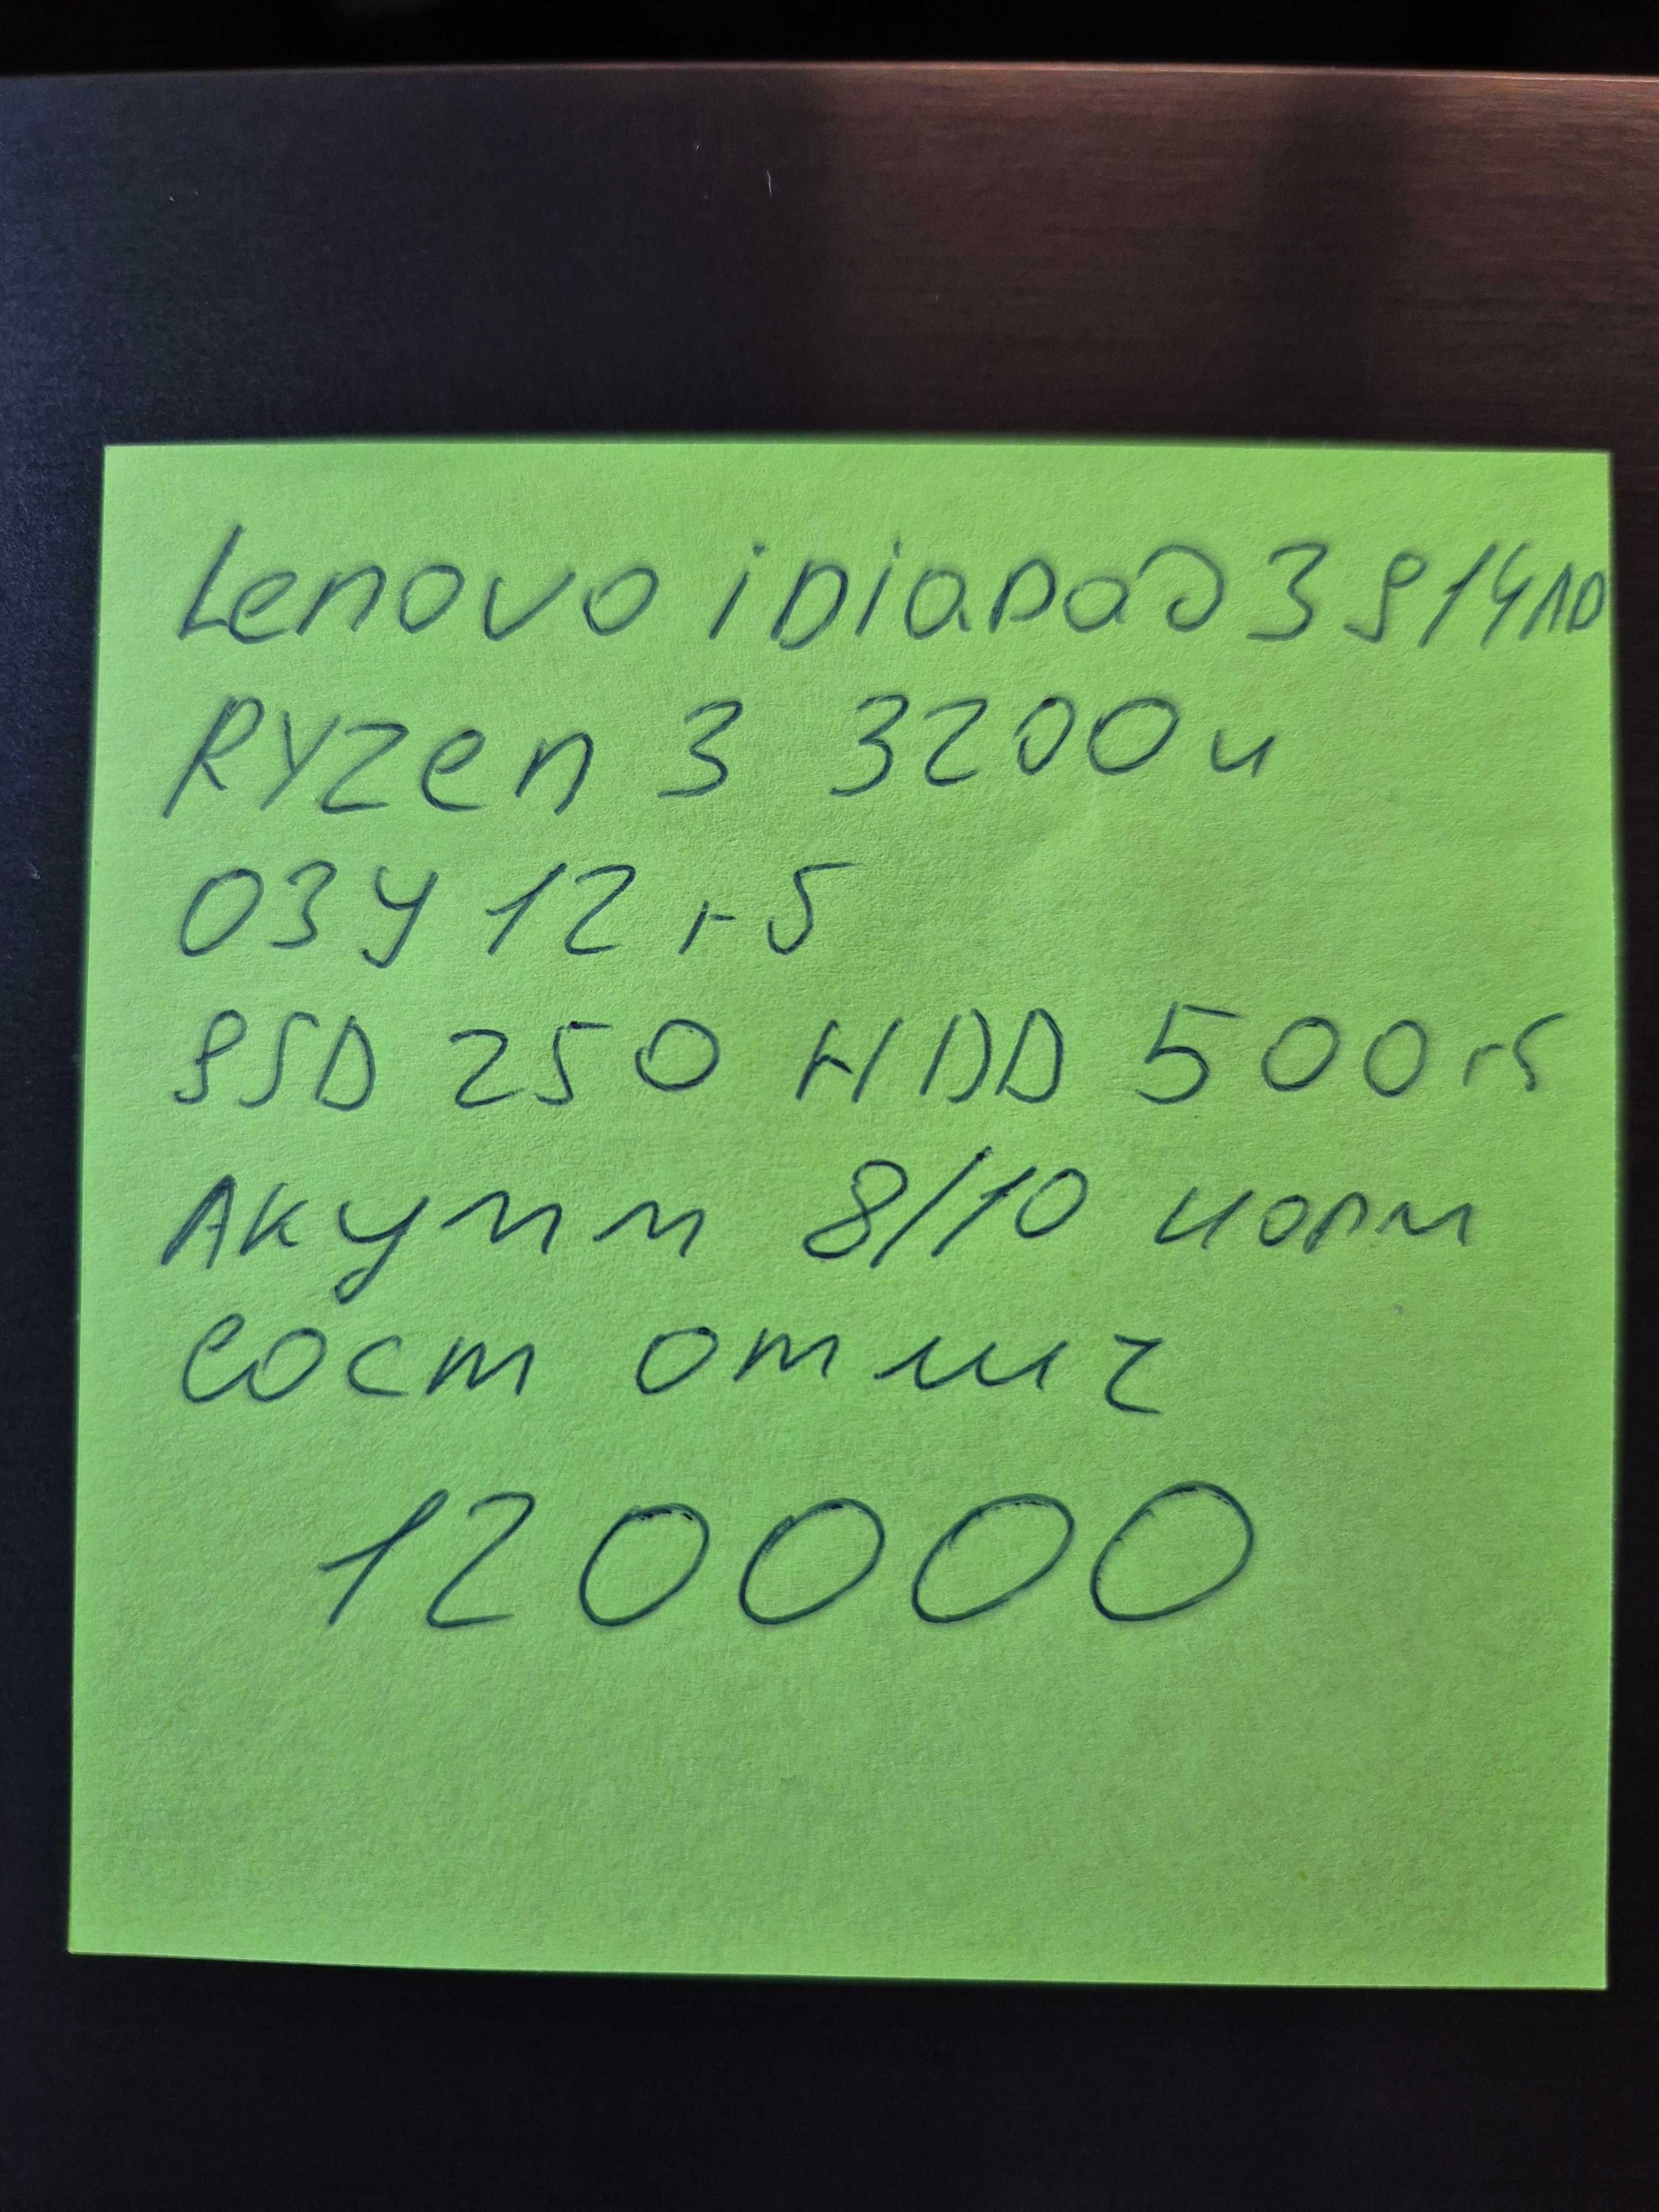 Lenovo iDiaPad 3 S14ЛD
Ryzen 3 3200u
ОЗУ 12 гб
SSD 250 HDD 500гб
Акумм 8/10 норм
сост отлич
120000